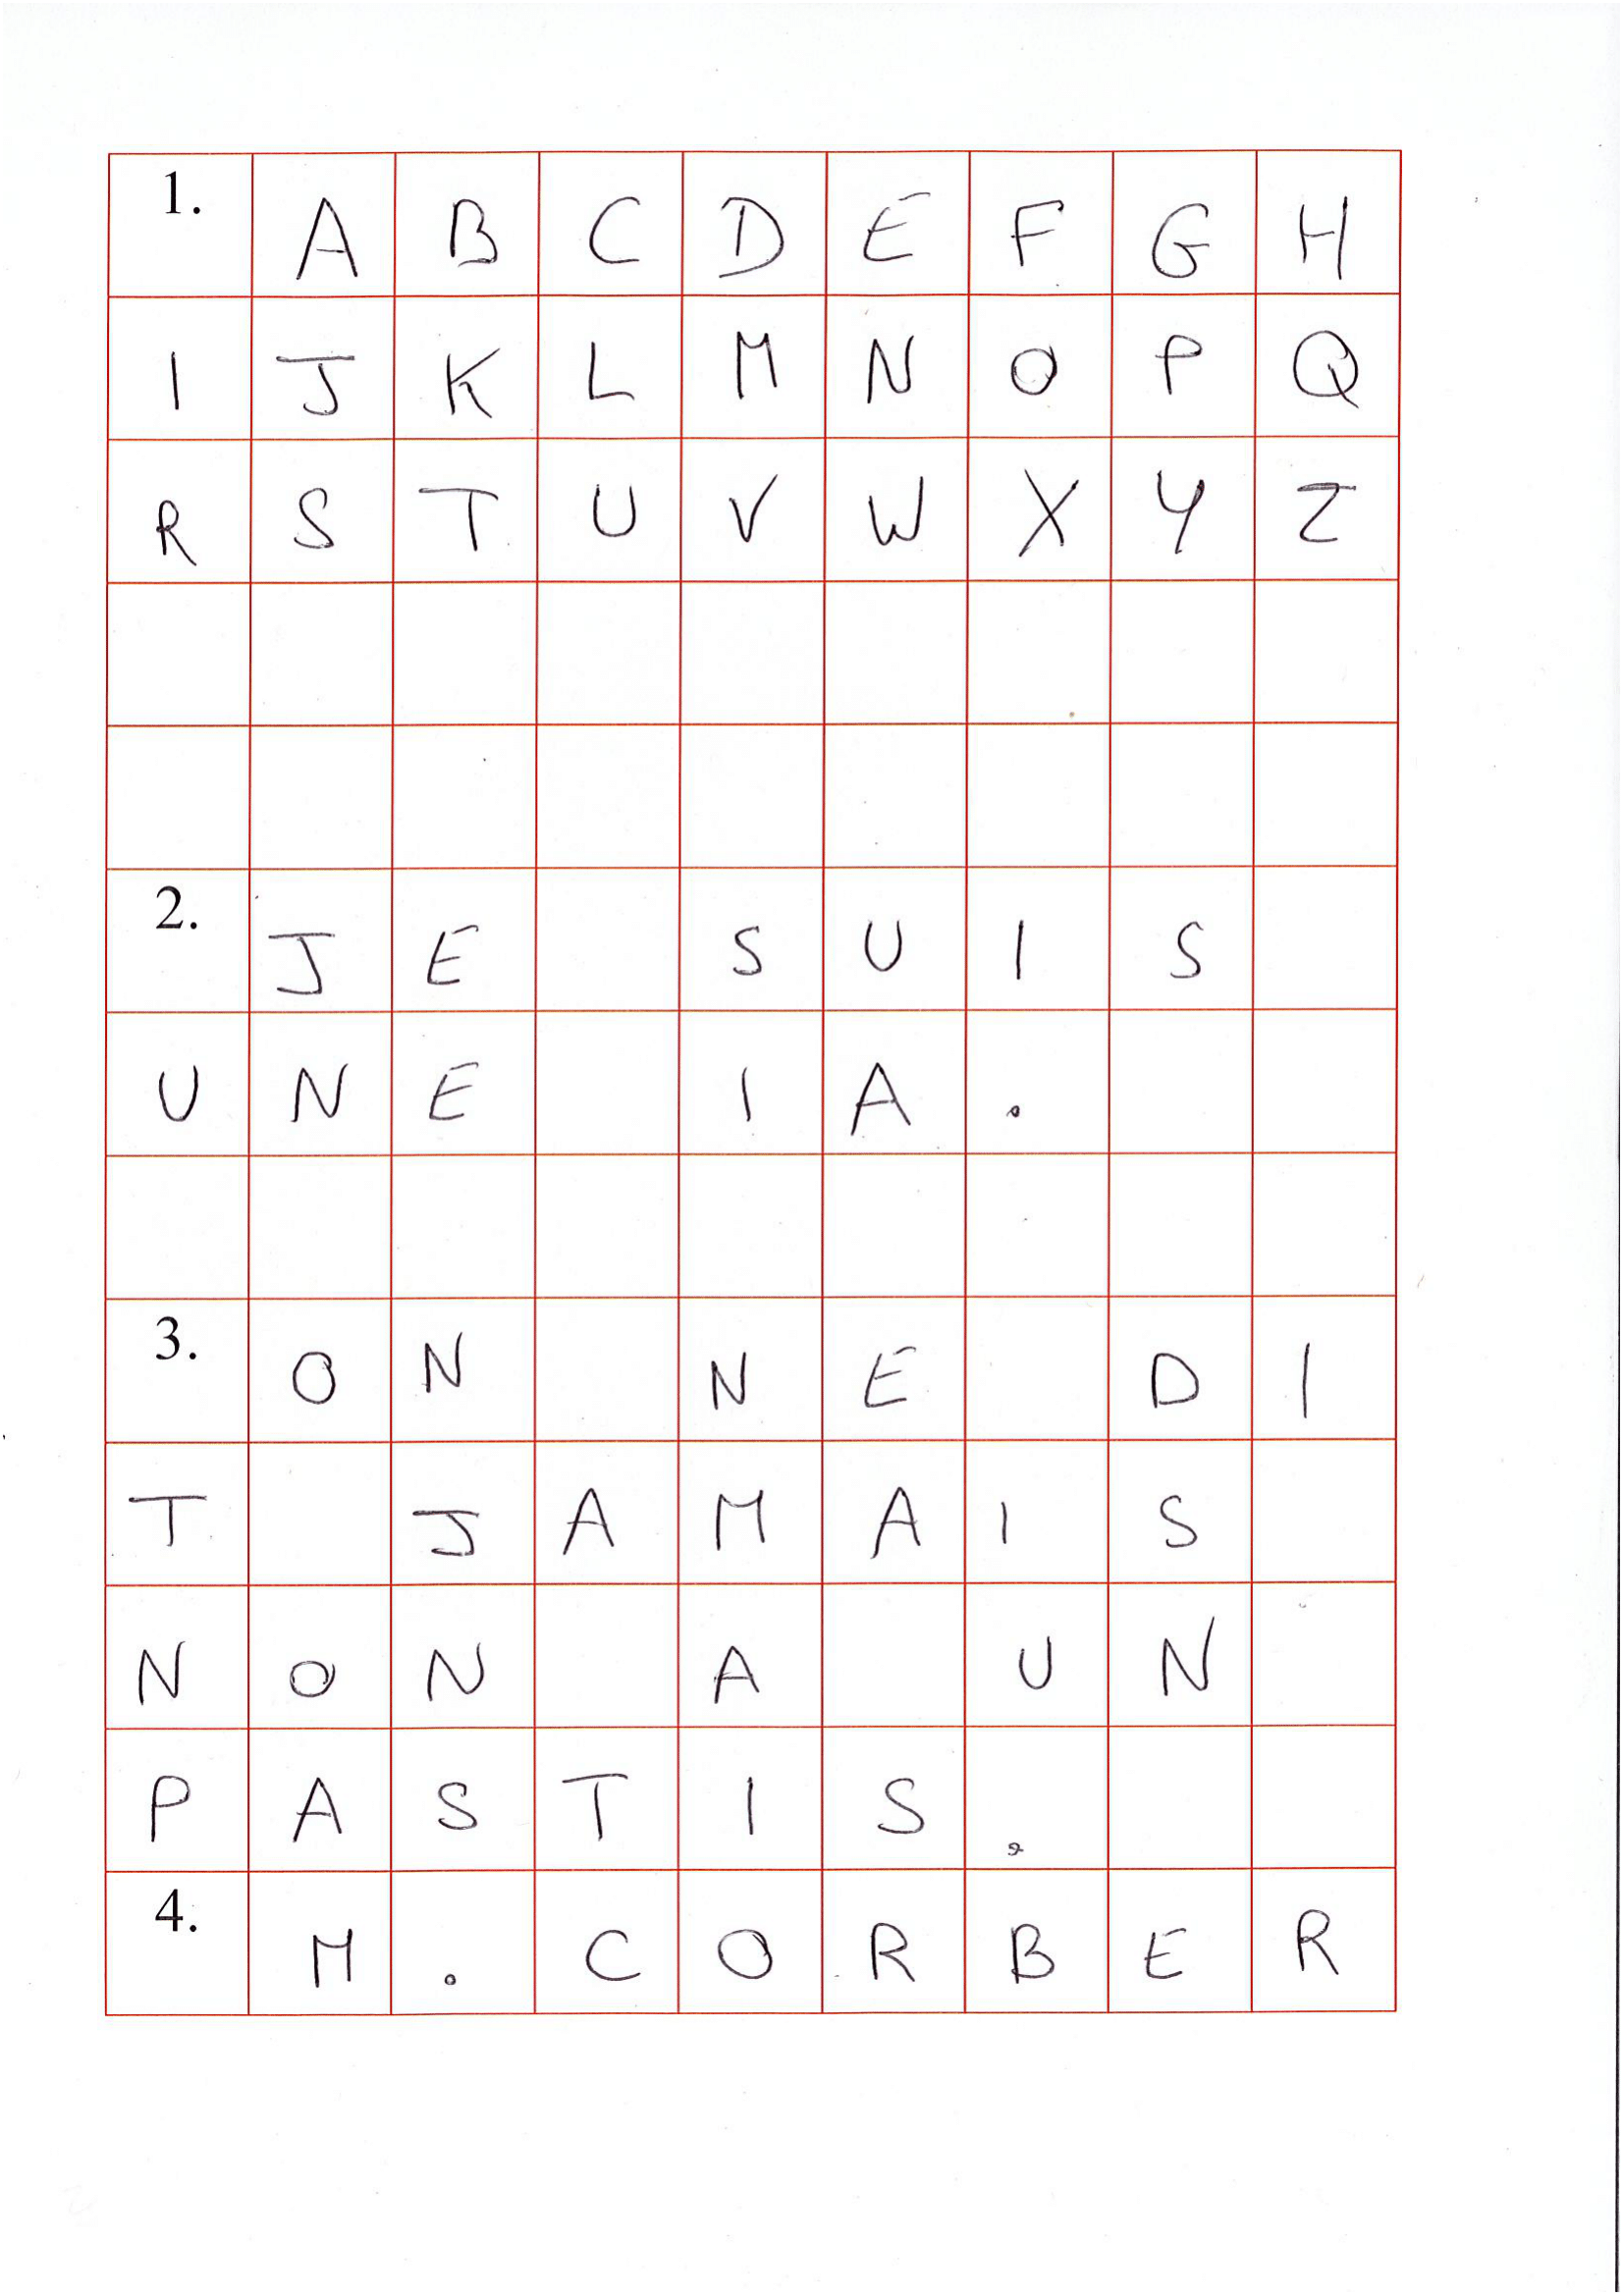 1. A B C D E F G H
I J K L M N O P Q
R S T U V W X Y Z
2. J E   S U I S
U N E   I A .
3. O N   N E   D I
T   J A M A I S
N O N   A   U N
P A S T I S .
4. M . C O R B E R